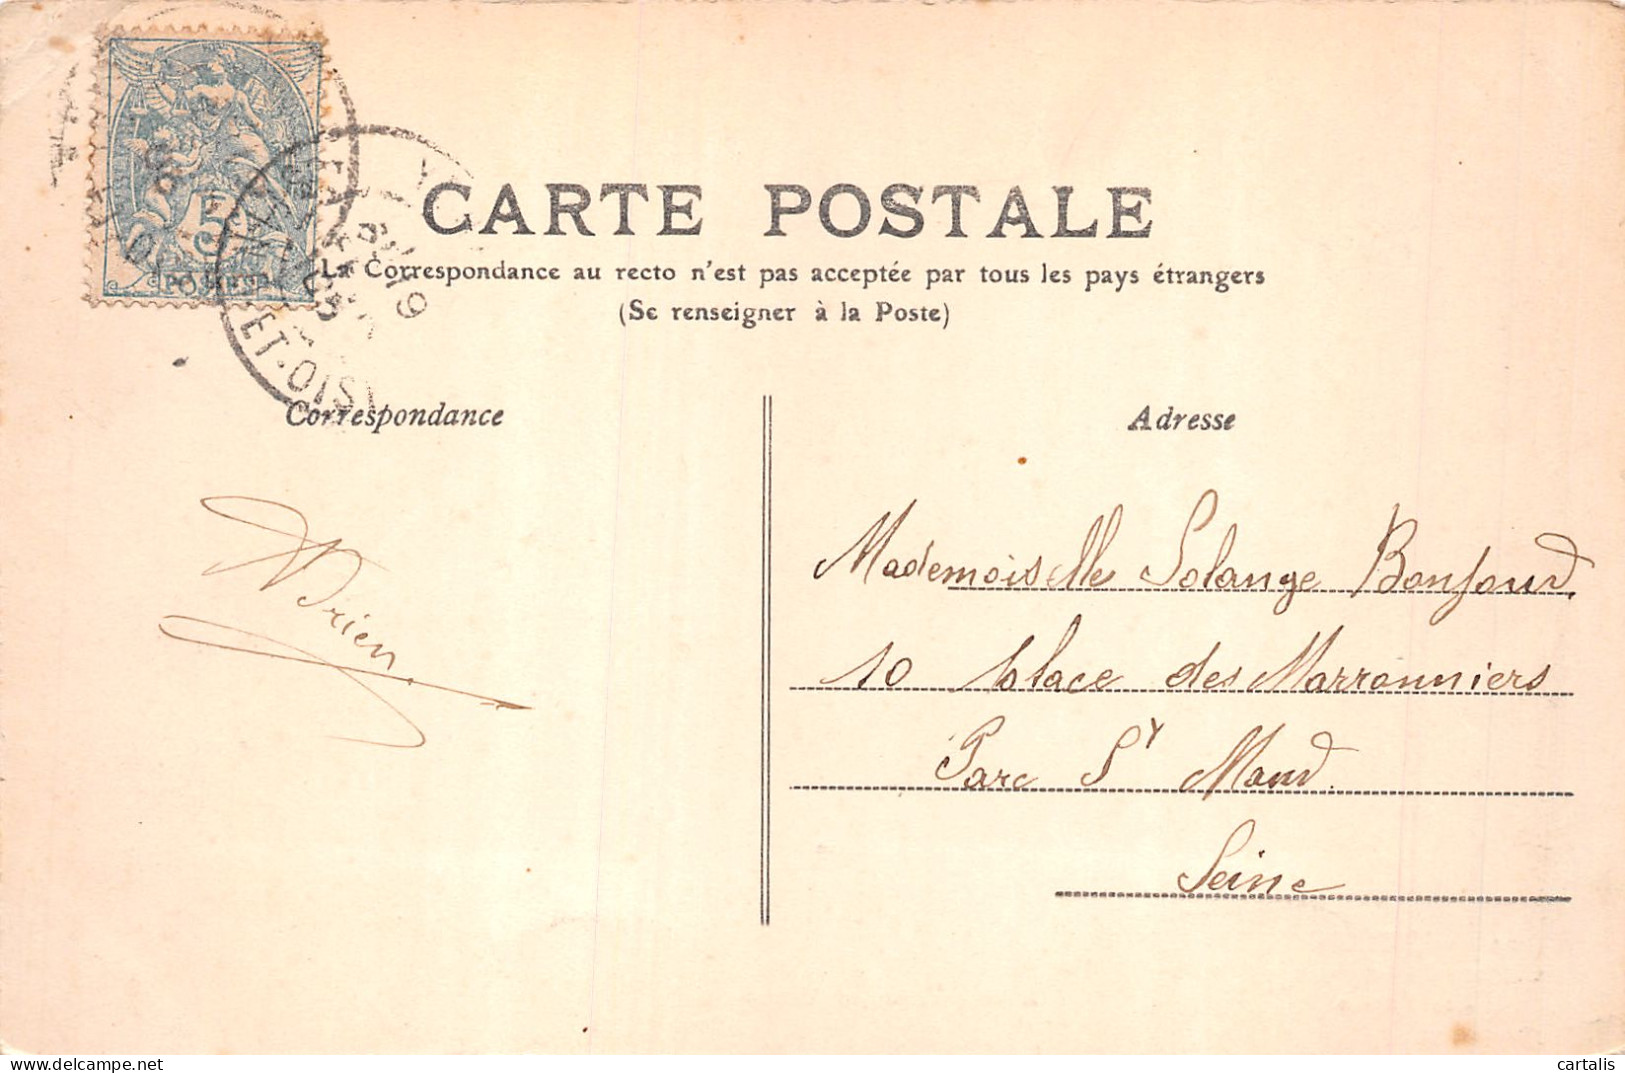 5
POSTES
ET-OISE
CARTE POSTALE
La Correspondance au recto n'est pas acceptée par tous les pays étrangers
(Se renseigner à la Poste)
Correspondance
Adresse
Mademoiselle Solange Bonjour
10 place des Marronniers
Parc St Mand.
Seine
cartalis
delcampe.net